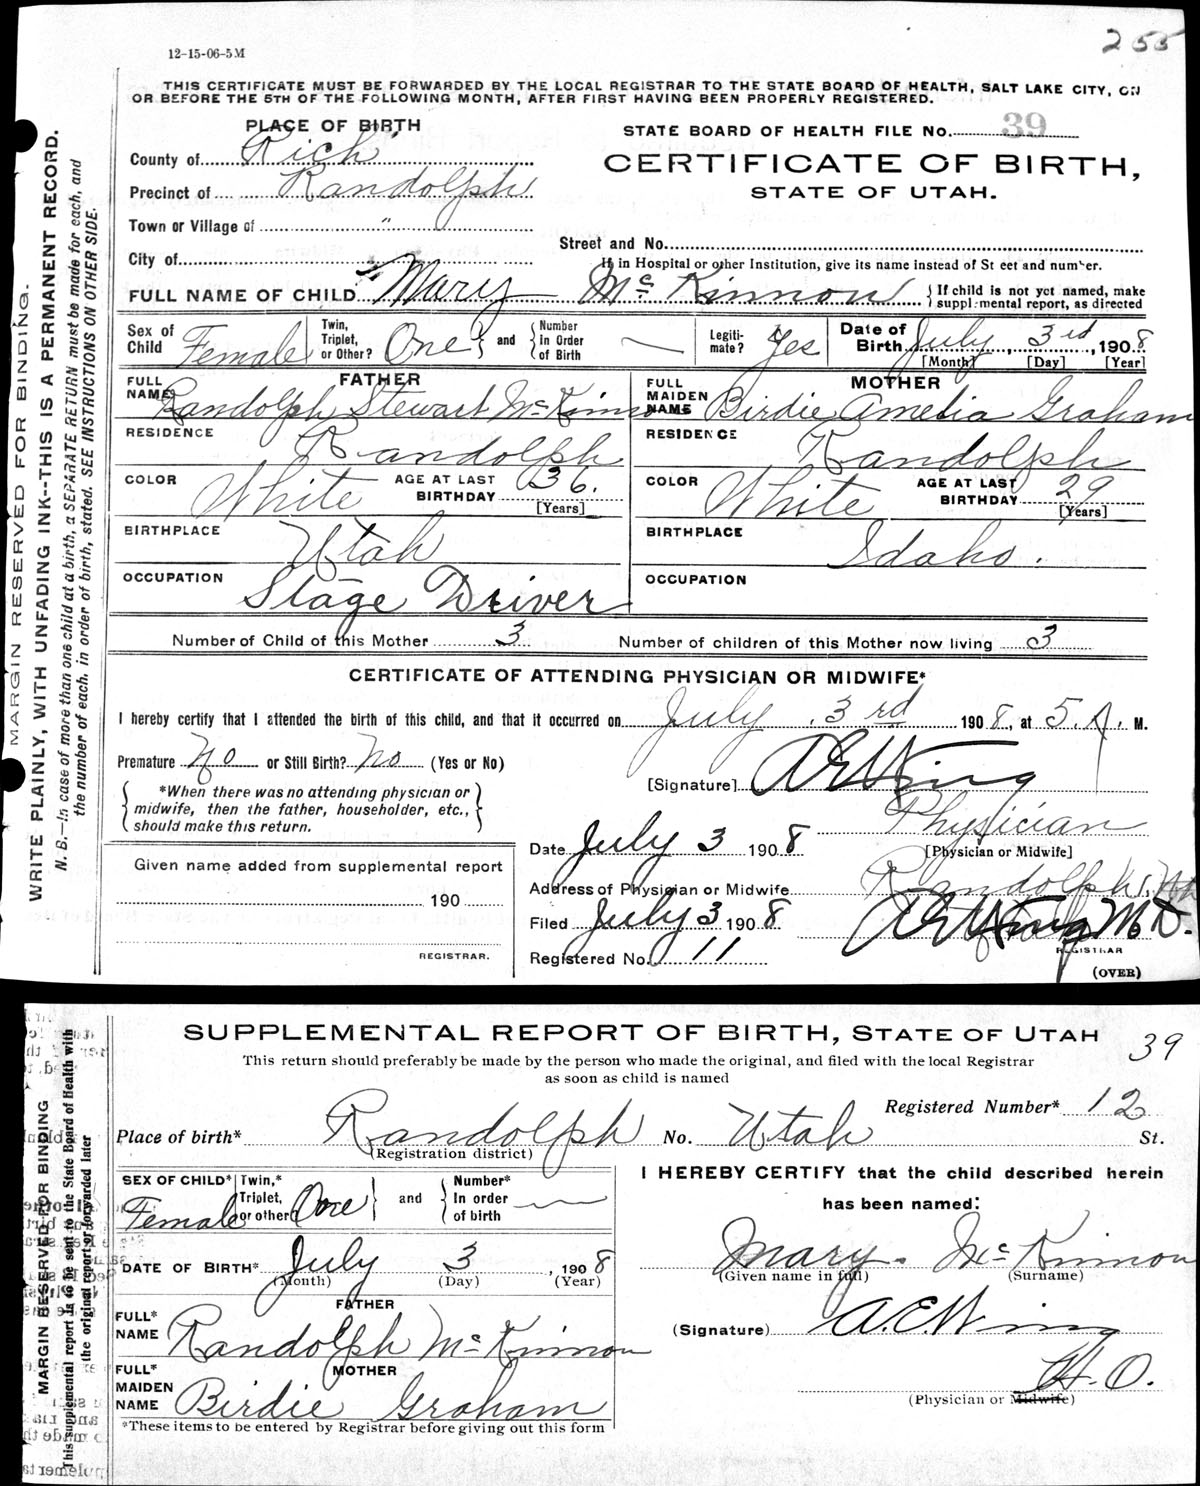 255
12-15-06-5M
THIS CERTIFICATE MUST BE FORWARDED BY THE LOCAL REGISTRAR TO THE STATE BOARD OF HEALTH, SALT LAKE CITY, ON
OR BEFORE THE 5TH OF THE FOLLOWING MONTH, AFTER FIRST HAVING BEEN PROPERLY REGISTERED.
MARGIN RESERVED FOR BINDING.
WRITE PLAINLY, WITH UNFADING INK--THIS IS A PERMANENT RECORD.
N. B.—In case of more than one child at a birth, a SEPARATE RETURN must be made for each, and
the number of each, in order of birth, stated. SEE INSTRUCTIONS ON OTHER SIDE.
PLACE OF BIRTH
STATE BOARD OF HEALTH FILE No. 39
County of Rich
CERTIFICATE OF BIRTH,
Precinct of Randolph
STATE OF UTAH.
Town or Village of "
Street and No.
City of
If in Hospital or other Institution, give its name instead of St eet and number.
FULL NAME OF CHILD Mary McKinnon { If child is not yet named, make
supplemental report, as directed
Sex of Child Female Twin, Triplet, or Other? One } and { Number In Order of Birth — Legiti-mate? Yes Date of Birth July 3rd, 1908
[Month] [Day] [Year]
FATHER MOTHER
FULL NAME Randolph Stewart McKinnon FULL MAIDEN NAME Birdie Amelia Graham
RESIDENCE Randolph RESIDENCE Randolph
COLOR White AGE AT LAST BIRTHDAY 36. [Years] COLOR White AGE AT LAST BIRTHDAY 29 [Years]
BIRTHPLACE Utah BIRTHPLACE Idaho.
OCCUPATION Stage Driver OCCUPATION
Number of Child of this Mother 3 Number of children of this Mother now living 3
CERTIFICATE OF ATTENDING PHYSICIAN OR MIDWIFE*
I hereby certify that I attended the birth of this child, and that it occurred on July 3rd 1908, at 5. A. M.
Premature No or Still Birth? No (Yes or No)
[Signature] A E Wing
*When there was no attending physician or
midwife, then the father, householder, etc.,
should make this return.
Physician
[Physician or Midwife]
Date July 3 1908
Given name added from supplemental report
190
REGISTRAR.
Address of Physician or Midwife Randolph, Utah
Filed July 3 1908 A E Wing M.D.
REGISTRAR
Registered No. 11
(OVER)
SUPPLEMENTAL REPORT OF BIRTH, STATE OF UTAH
39
This return should preferably be made by the person who made the original, and filed with the local Registrar
as soon as child is named
MARGIN RESERVED FOR BINDING
This supplemental report is to be sent to the State Board of Health with
the original report or forwarded later
Registered Number* 12
Place of birth* Randolph No. Utah St.
(Registration district)
SEX OF CHILD* Female Twin,* Triplet, or other? One } and { Number* In order of birth —
I HEREBY CERTIFY that the child described herein
has been named:
DATE OF BIRTH* July 3, 1908
(Month) (Day) (Year)
Mary McKinnon
(Given name in full) (Surname)
FATHER
FULL* NAME Randolph McKinnon
(Signature) A.E. Wing
MOTHER
FULL* MAIDEN NAME Birdie Graham
H.O.
(Physician or Midwife)
*These items to be entered by Registrar before giving out this form